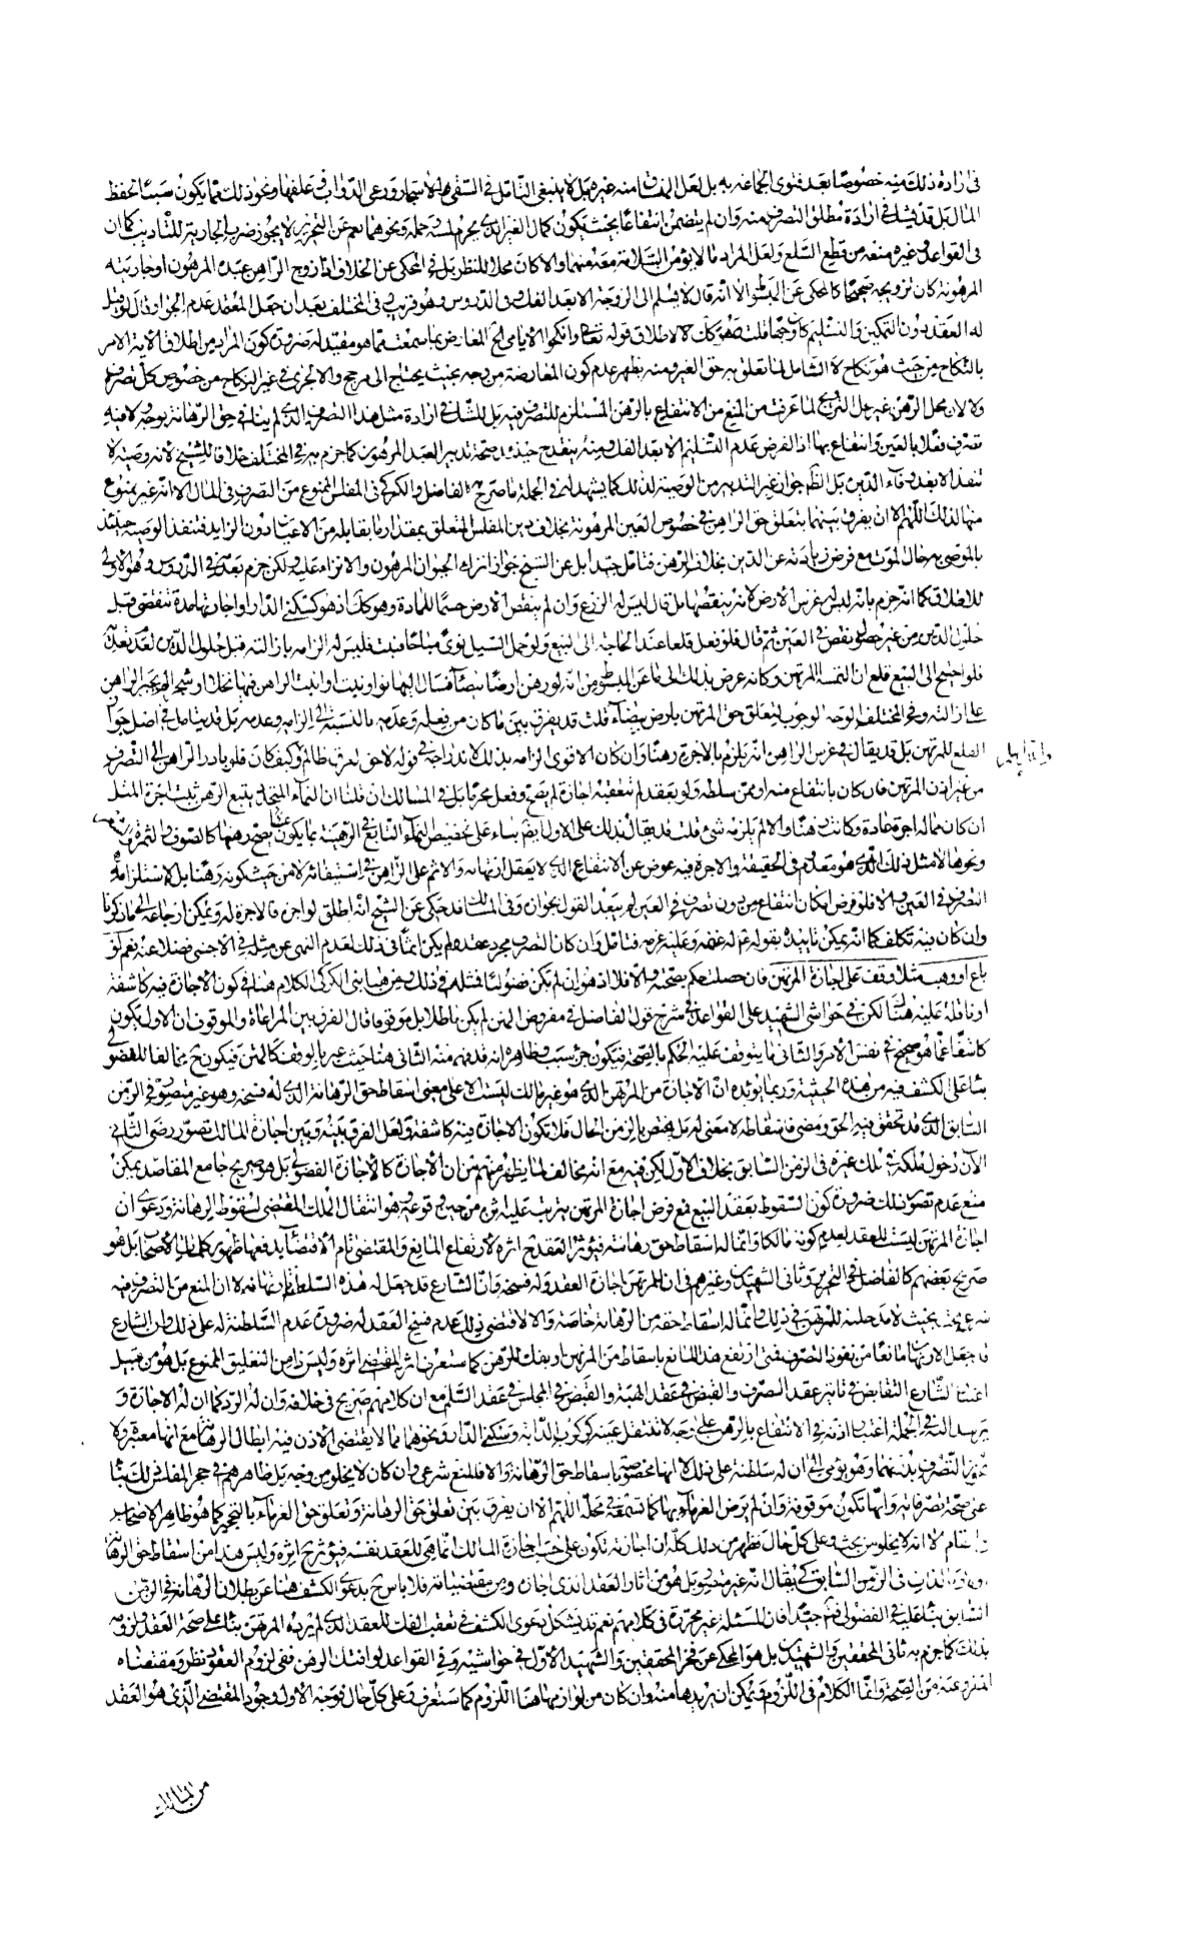 في ارادة ذلك منه خصوصا بعد فتوى الجماعة به بل لعل المداواة منه غيره بل لا ينبغي التأمل في السقي للأشجار ورعى الدواب وعلفها ونحو ذلك مما يكون سببا لحفظ
المال بل قد يشك في ارادة مطلق التصرف منه وان لم يتضمن انتفاعا بحيث يكون كمال الغير الذي يحرم لمسه وحمله ونحوهما نعم عن التحرير لا يجوز ضرب الجارية للتأديب كما ان
في القواعد وغيره منعه من قطع السلع ولعل المراد ما لا يؤمن السلامة معه منهما والا كان محلا للنظر بل في المحكي عن الخلاف اذا زوج الراهن عبده المرهون او جاريته
المرهونة كان تزويجه صحيحا كالمحكي عن المبسوط الا انه قال لا يسلم الى الزوجة الا بعد الفك وفي الدروس وهو قريب وفي المختلف بعد ان جعل المعتمد عدم الجواز قال لو قيل
له العقد بدون التمكين والتسليم كان وجها قلت هو كذلك لاطلاق قوله تعالى وانكحوا الايامى الخ المعارض بما سمعت مما هو مقيد له ضرورة كون المراد من اطلاق الاية الامر
بالنكاح من حيث هو نكاح لا الشامل لما تعلق به حق الغير ومنه يظهر عدم كون المعارضة من وجه بحيث يحتاج الى مرجح والا لجرى في غير النكاح من خصوص كل تصرف
ولا لان محل الرهن غير محل التزويج لما عرفت من المنع من الانتفاع بالرهن المستلزم للتصرف فيه بل للشك في ارادة مثل هذا التصرف الذي لم يناف حق الرهانة بوجه ولا فيه
تصرف فعلا بالعين وانتفاع بها اذ الفرض عدم التسليم الا بعد الفك ومنه ينقدح حينئذ صحة تدبير العبد المرهون كما جزم به في المختلف خلافا للشيخ لانه وصية لا
تنفذ الا بعد وفاء الدين بل الظاهر جواز غير التدبير من الوصية لذلك كما يشهد له في الجملة ما صرح به الفاضل والكركي في المفلس الممنوع من التصرف في المال الا انه غير ممنوع
منها لذلك اللهم الا ان يفرق بينهما بتعلق حق الراهن في خصوص العين المرهونة بخلاف دين المفلس المتعلق بمقدار ما يقابله من الاعيان دون الزايد فتنفذ الوصية حينئذ
بالموصى به حال الموت مع فرض زيادته عن الدين بخلاف الرهن فتأمل جيدا بل عن الشيخ جواز انزاء الحيوان المرهون والانزاء عليه ولكن جزم بعدمه في الدروس وهو الاولى
للاطلاق كما انه جزم بانه ليس له غرس الارض لانه ينقصها بل قال ليس له الزرع وان لم ينقص الارض حسما للمادة وهو كذلك اذ هو كسكنى الدار او اجارتها مدة تنقضي قبل
حلول الدين من غير حصول نقص في العين ثم قال فلو فعل قلعا عند الحاجة الى البيع ولو حمل السيل نوى مباحا فنبت فليس له الزامه بازالته قبل حلول الدين لعدم تعديه
فلو احتيج الى البيع قلع ان التمسه المرتهن وكانه عرض بذلك الى ما عن المبسوط من انه لو رهن ارضا بيضاء فسال اليها نوى ونبت او انبت الراهن فيها نخلا او شجرا لم يجبر الراهن
على ازالته وفي المختلف الوجه الوجوب لتعلق حق المرتهن بارض بيضاء قلت قد يفرق بين ما كان من فعله وعدمه بالنسبة الى الزامه وعدمه بل قد يتأمل في اصل جواز
القلع للمرتهن بل قد يقال في غرس الراهن انه يلزم بالاجرة رهنا وان كان الاقوى الزامه بذلك لاندراجه في قوله لا حق لعرق ظالم وكيف كان فلو بادر الراهن الى التصرف
من غير اذن المرتهن فان كان بانتفاع منه او ممن سلطه ولو بعقد لم تتعقبه اجازة لم يصح وفعل محرما بل في المسالك ان قلنا ان النماء المتجدد يتبع الرهن ثبت اجرة المثل
ان كان مما له اجرة عادة وكانت رهنا والا لم يلزمه شيء قلت قد يقال بذلك على الاول ايضا بناء على تخصيص النماء التابع في الرهنية بما يكون عينا يصح رهنها كالصوف والثمرة
ونحوها لا مثل ذلك الذي هو معدوم في الحقيقة والاجرة فيه عوض عن الانتفاع الذي لا يعقل ارتهانه والاثم على الراهن في استيفائه لا من حيث كونه رهنا بل لاستلزامه
التصرف في العين والا فلو فرض امكان انتفاع من دون تصرف في العين لم يبعد القول بجوازه وفي المسالك قد حكى عن الشيخ انه اطلق لو اجره فالاجرة له ويمكن ارجاعه الى ما ذكرنا
وان كان فيه تكلف كما انه يمكن تأييده بقوله ع له غنمه وعليه غرمه فتأمل وان كان التصرف مجرد عقد لم يكن اثما في ذلك لعدم النهي عن مثله في الاجنبي فضلا عنه نعم لو
باع او وهب مثلا وقف على اجازة المرتهن فان حصلت حكم بصحته والا فلا اذ هو ان لم يكن فضوليا فمثله في ذلك ومن هنا بنى الكركي الكلام هنا في كون الاجازة فيه كاشفة
او ناقلة عليه هناك لكن في حواشي الشهيد على القواعد في شرح قول الفاضل في مفروض المتن لم يكن باطلا بل موقوفا قال الفرق بين المراعاة والموقوف ان الاول يكون
كاشفا عما هو صحيح في نفس الامر والثاني ما يتوقف عليه الحكم بالصحة فيكون جزء سبب وظاهره انه قد فهم منه الثاني هنا حيث عبر بالوقف كالمتن فيكون ح مخالفا للفضولي
بناء على الكشف فيه من هذه الحيثية وربما يؤيده ان الاجازة من المرتهن الذي هو غير مالك ليست الا على معنى اسقاط حق الرهانة الذي له فسخه وهو غير متصور في الزمن
السابق الذي قد تحقق فيه الحق ومضى فاسقاطه لا معنى له بل يختص بالزمن الحال فلا تكون الاجازة فيه كاشفة ولعل الفرق بينه وبين اجازة المالك تصور رضى الثاني
الآن دخوله ملكه في ملك غيره في الزمن السابق بخلاف الاول لكن فيه مع انه مخالف لما يظهر منهم من ان الاجازة كالاجازة في الفضولي بل هو صريح جامع المقاصد يمكن
منع عدم تصور ذلك ضرورة كون السقوط بعقد البيع فمع فرض اجازة المرتهن يترتب عليه اثره من حين وقوعه وهو انتقال الملك المقتضي لسقوط الرهانة ودعوى ان
اجازة المرتهن ليست للعقد لعدم كونه مالكا وانما له اسقاط حق رهانته فيؤثر العقد ح اثره لارتفاع المانع والمقتضي تام الاقتضاء يدفعها ظهور كلمات الاصحاب بل هو
صريح بعضهم كالفاضل في التحرير وثاني الشهيدين وغيرهم في ان للمرتهن اجازة العقد وله فسخه وان الشارع قد جعل له هذه السلطنة بارتهانه لا ان المنع من التصرف فيه
بحيث لا مدخلية للمرتهن في ذلك وانما له اسقاط حقه من الرهانة خاصة والا لاقتضى ذلك عدم فسخ العقد له ضرورة عدم السلطنة له على ذلك وان الشارع
جعل الارتهان مانعا من نفوذ التصرف فمتى ارتفع هذا المانع باسقاط من المرتهن او بفك للرهن كما ستعرف اثر المقتضي اثره وليس ذا من التعليق الممنوع بل هو من قبيل
اعتبار الشارع التقابض في تأثير عقد الصرف والقبض في عقد الهبة والقبض في المجلس في عقد السلم مع ان كلامهم صريح في خلافه وان له الرد كما ان له الاجازة و
في الجملة اعتبار اذنه في الانتفاع بالرهن على وجه لا تنتقل عينه كركوب الدابة وسكنى الدار ونحوهما مما لا يقتضي الاذن فيه ابطال الرهانة مع انها معتبرة ولا
التصرف بدونها وهو يؤمي الى ان له سلطنة على ذلك لا انها مخصوصة باسقاط حق الرهانة والا فالمنع شرعي وان كان لا يخلو من وجه بل ظاهرهم في حجر المفلس ذلك بناء
على صحة تصرفاته وانها تكون موقوفة وان لم يرض الغرماء بها كما تسمعه في محله اللهم الا ان يفرق بين تعلق حق الرهانة وتعلق حق الغرماء بالتحجير كما هو ظاهر الاصحاب
المقام الا انه لا يخلو من بحث وعلى كل حال فظهر من ذلك كله ان اجازته تكون على حسب اجازة المالك انما هي للعقد نفسه فيؤثر ح اثره وليس هذا من اسقاط حق الرهانة
في الزمن السابق كي يقال انه غير متصور بل هو من آثار العقد الذي اجازه ومن مقتضياته فلا باس ح بدعوى الكشف هنا عن بطلان الرهانة في الزمن
السابق بناء عليه في الفضولي فتأمل جيدا فان المسئلة غير محررة في كلامهم نعم قد يشكل دعوى الكشف في تعقب الفك للعقد الذي لم يرده المرتهن بناء على صحة العقد ولزومه
بذلك كما جزم به ثاني المحققين والشهيدين بل هو المحكي عن فخر المحققين والشهيد الاول في حواشيه وفي القواعد لو افتك الرهن ففي لزوم العقود نظر ومقتضاه
الفراغ عنه من الصحة وانما الكلام في اللزوم ويمكن ان يريدها منه وان كان من لوازمها هنا اللزوم كما ستعرف وعلى كل حال فوجه الاول وجود المقتضي الذي هو العقد